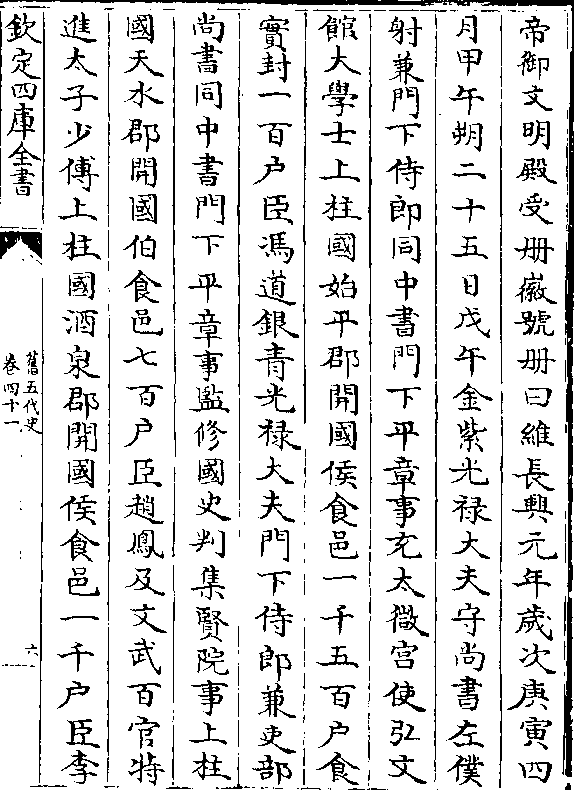 帝御文明殿受册徽號册曰維長興元年歲次庚寅四
月甲午朔二十五日戊午金紫光禄大夫守尚書左僕
射兼門下侍郎同中書門下平章事充太微宫使弘文
館大學士上柱國始平郡開國侯食邑一千五百户食
實封一百户臣馮道銀青光禄大夫門下侍郎兼吏部
尚書同中書門下平章事監修國史判集賢院事上柱
國天水郡開國伯食邑七百户臣趙鳳及文武百官特
進太子少傅上柱國酒泉郡開國侯食邑一千户臣李
欽定四庫全書
舊五代史
卷四十一
六